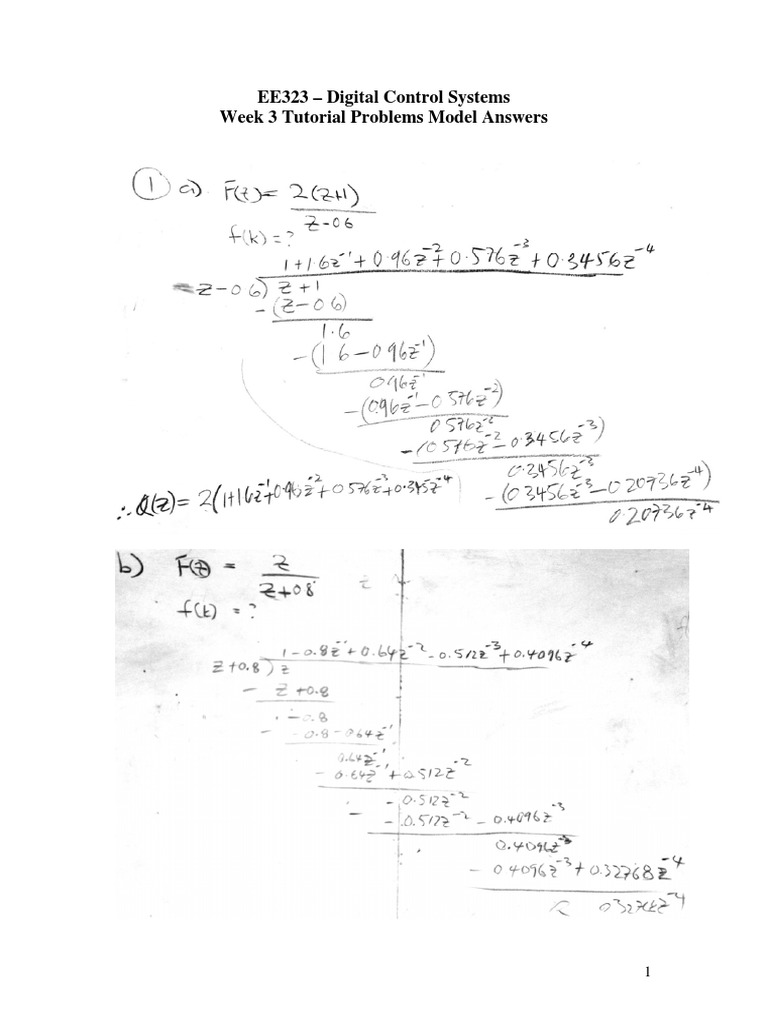 EE323 – Digital Control Systems
Week 3 Tutorial Problems Model Answers
1 a) F(z) = 2(z+1)
z-0.6
f(k) = ?
1+1.6z⁻¹+0.96z⁻²+0.576z⁻³+0.3456z⁻⁴
z-0.6) z+1
-(z-0.6)
1.6
-(1.6-0.96z⁻¹)
0.96z⁻¹
-(0.96z⁻¹-0.576z⁻²)
0.576z⁻²
-(0.576z⁻²-0.3456z⁻³)
0.3456z⁻³
-(0.3456z⁻³-0.20736z⁻⁴)
0.20736z⁻⁴
∴ Q(z) = 2(1+1.6z⁻¹+0.96z⁻²+0.576z⁻³+0.345z⁻⁴
b) F(z) = z
z+0.8
f(k) = ?
1-0.8z⁻¹+0.64z⁻²-0.512z⁻³+0.4096z⁻⁴
z+0.8) z
- z+0.8
-0.8
- -0.8-0.64z⁻¹
0.64z⁻¹
- 0.64z⁻¹+0.512z⁻²
-0.512z⁻²
- -0.512z⁻²-0.4096z⁻³
0.4096z⁻³
- 0.4096z⁻³+0.32768z⁻⁴
0.32768z⁻⁴
1